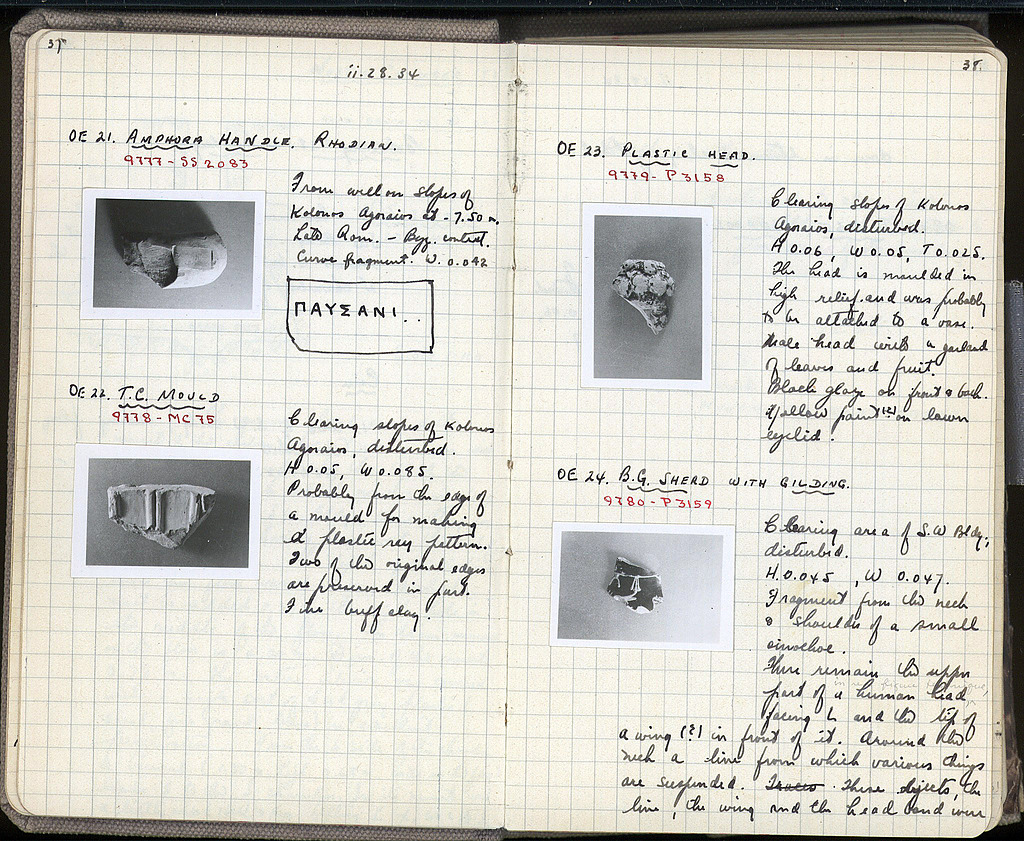 37
ii.28.34
OE 21. AMPHORA HANDLE. RHODIAN.
9777 - SS 2083
From well on slopes of
Kolonos Agoraios at - 7.50 m.
Late Rom. - Byz. context.
Curve fragment. W. 0.042
ΠΑΥΣΑΝΙ..
OE 22. T.C. MOULD
9778 - MC 75
Clearing slopes of Kolonos
Agoraios, disturbed.
H 0.05, W 0.085.
Probably from the edge of
a mould for making
a plastic rey pattern.
Two of the original edges
are preserved in part.
Fine buff clay.
38.
OE 23. PLASTIC HEAD.
9779 - P 3158
Clearing slopes of Kolonos
Agoraios, disturbed.
H 0.06, W 0.05, T 0.025.
The head is moulded in
high relief and was probably
to be attached to a vase.
Male head with a garland
of leaves and fruit.
Black glaze on front & back.
Yellow paint (?) on lower
eyelid.
OE 24. B.G. SHERD WITH GILDING.
9780 - P 3159
Clearing area of S.W Bldg.,
disturbed.
H. 0.045, W 0.047.
Fragment from the neck
& shoulder of a small
oinochoe.
There remain the upper
part of a human head,
facing L and the tip of
a wing (?) in front of it. Around the
neck a line from which various things
are suspended. Traces These objects, the
line, the wing and the head band were